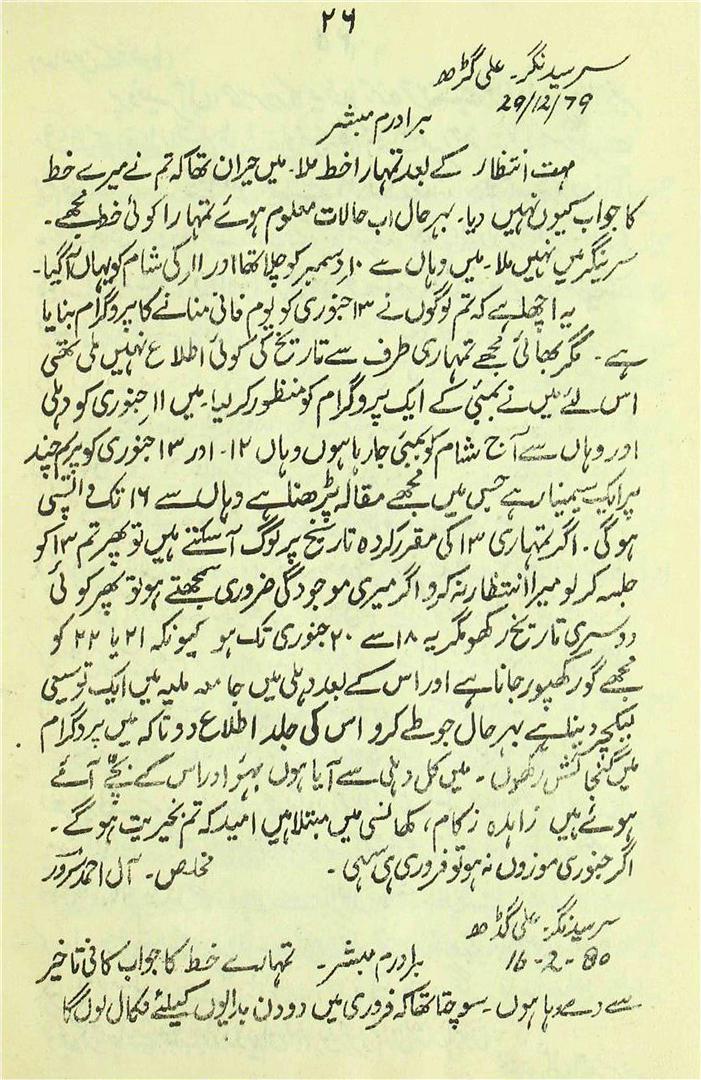 ۲۶
سرسید نگر۔ علی گڑھ
29/12/79
برادرم مبشر
بہت انتظار کے بعد تمہارا خط ملا۔ میں حیران تھا کہ تم نے میرے خط
کا جواب کیوں نہیں دیا۔ بہر حال اب حالات معلوم ہوئے تمہارا کوئی خط مجھے۔
سرینگر میں نہیں ملا۔ میں وہاں سے ۱۰ دسمبر کو چلا تھا اور ۱۱ کی شام کو یہاں آگیا۔
یہ اچھا ہے کہ تم لوگوں نے ۱۳ جنوری کو یوم فانی منانے کا پروگرام بنایا
ہے۔ مگر بھائی مجھے تمہاری طرف سے تاریخ کی کوئی اطلاع نہیں ملی تھی
اس لئے میں نے بمبئی کے ایک پروگرام کو منظور کر لیا۔ میں ۱۱ جنوری کو دہلی
اور وہاں سے آج شام کو بمبئی جا رہا ہوں وہاں ۱۲۔ اور ۱۳ جنوری کو پریم چند
پر ایک سیمینار ہے جس میں مجھے مقالہ پڑھنا ہے وہاں سے ۱۶ تک واپسی
ہوگی۔ اگر تمہاری ۱۳ کی مقرر کردہ تاریخ پر لوگ آسکتے ہیں تو پھر تم ۱۳ کو
جلسہ کر لو میرا انتظار نہ کرو اگر میری موجودگی ضروری سمجھتے ہو تو پھر کوئی
دوسری تاریخ رکھو مگر یہ ۱۸ سے ۲۰ جنوری تک ہو کیونکہ ۲۱ یا ۲۲ کو
مجھے گورکھپور جانا ہے اور اس کے بعد دہلی میں جامعہ ملیہ میں ایک توسیعی
لیکچر دینا ہے بہر حال جو طے کرو اس کی جلد اطلاع دو تاکہ میں پروگرام
میں گنجائش رکھوں۔ میں کل دہلی سے آیا ہوں بہو اور اس کے بچے آئے
ہوئے ہیں زاہدہ زکام، کھانسی میں مبتلا ہیں امید کہ تم بخیریت ہوگے۔
اگر جنوری موزوں نہ ہو تو فروری ہی سہی۔ مخلص۔ آل احمد سرور
سرسید نگر۔ علی گڑھ
16-2-80 برادرم مبشر۔ تمہارے خط کا جواب کافی تاخیر
سے دے رہا ہوں۔ سوچتا تھا کہ فروری میں دو دن بدایوں کیلئے نکال لوں گا